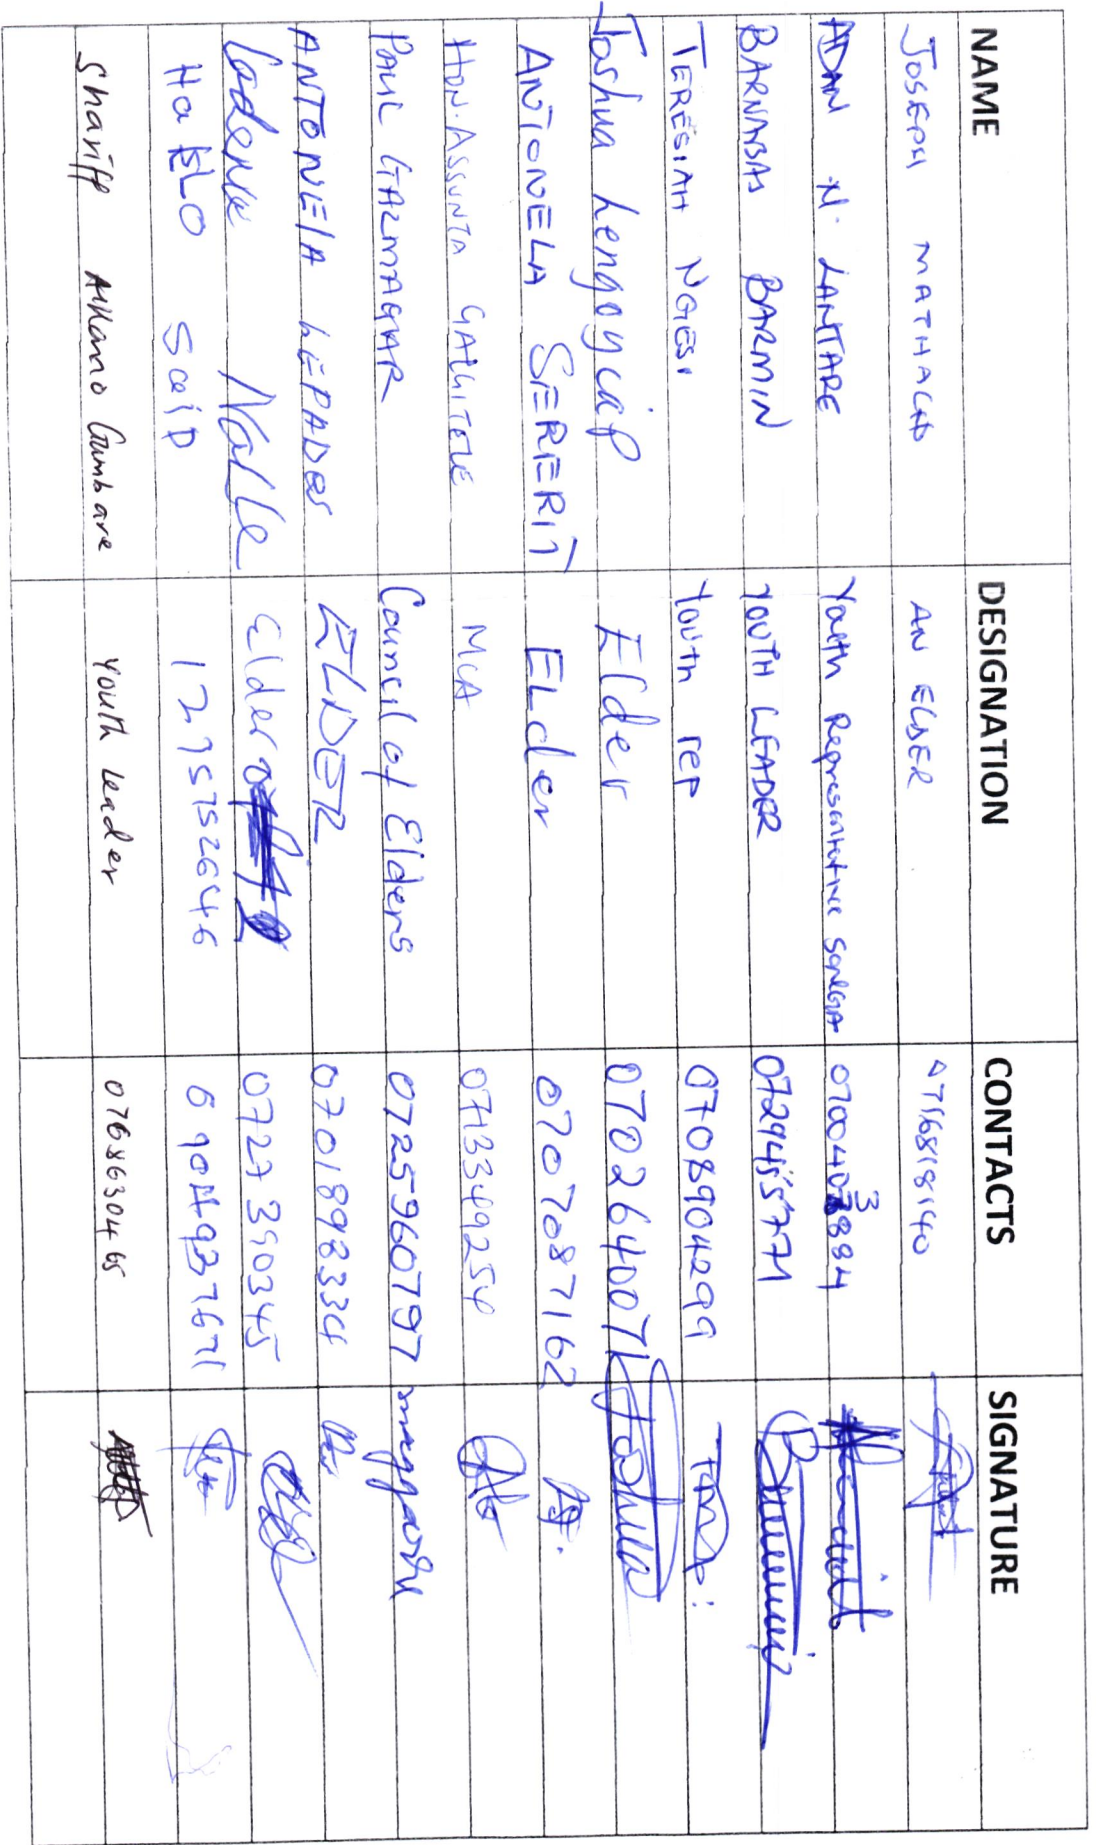 NAME DESIGNATION CONTACTS SIGNATURE
JOSEPH MATHACHO AN ELDER 0716818140
ADAN N. LANTARE Youth Representative 0700403884
BARNABAS BARMIN YOUTH LEADER 0729455771
TERESIAH NGESI Youth rep 0708904299
Joshua Lengoyiap Elder 0702640071 Joshua
ANTONELA SERERIT ELder 0707087162
HON. ASSUNTA GALGITELE MCA 0713349254
PAUL GALMAGAR Council of Elders 0725960797
ANTONELA LEPADAS ELDER 0701898334
Nalle Elder 0727390345
HaKLO SaiD 1 27575 2646
Shariff Alkano Gumbare Youth Leader 0768630465